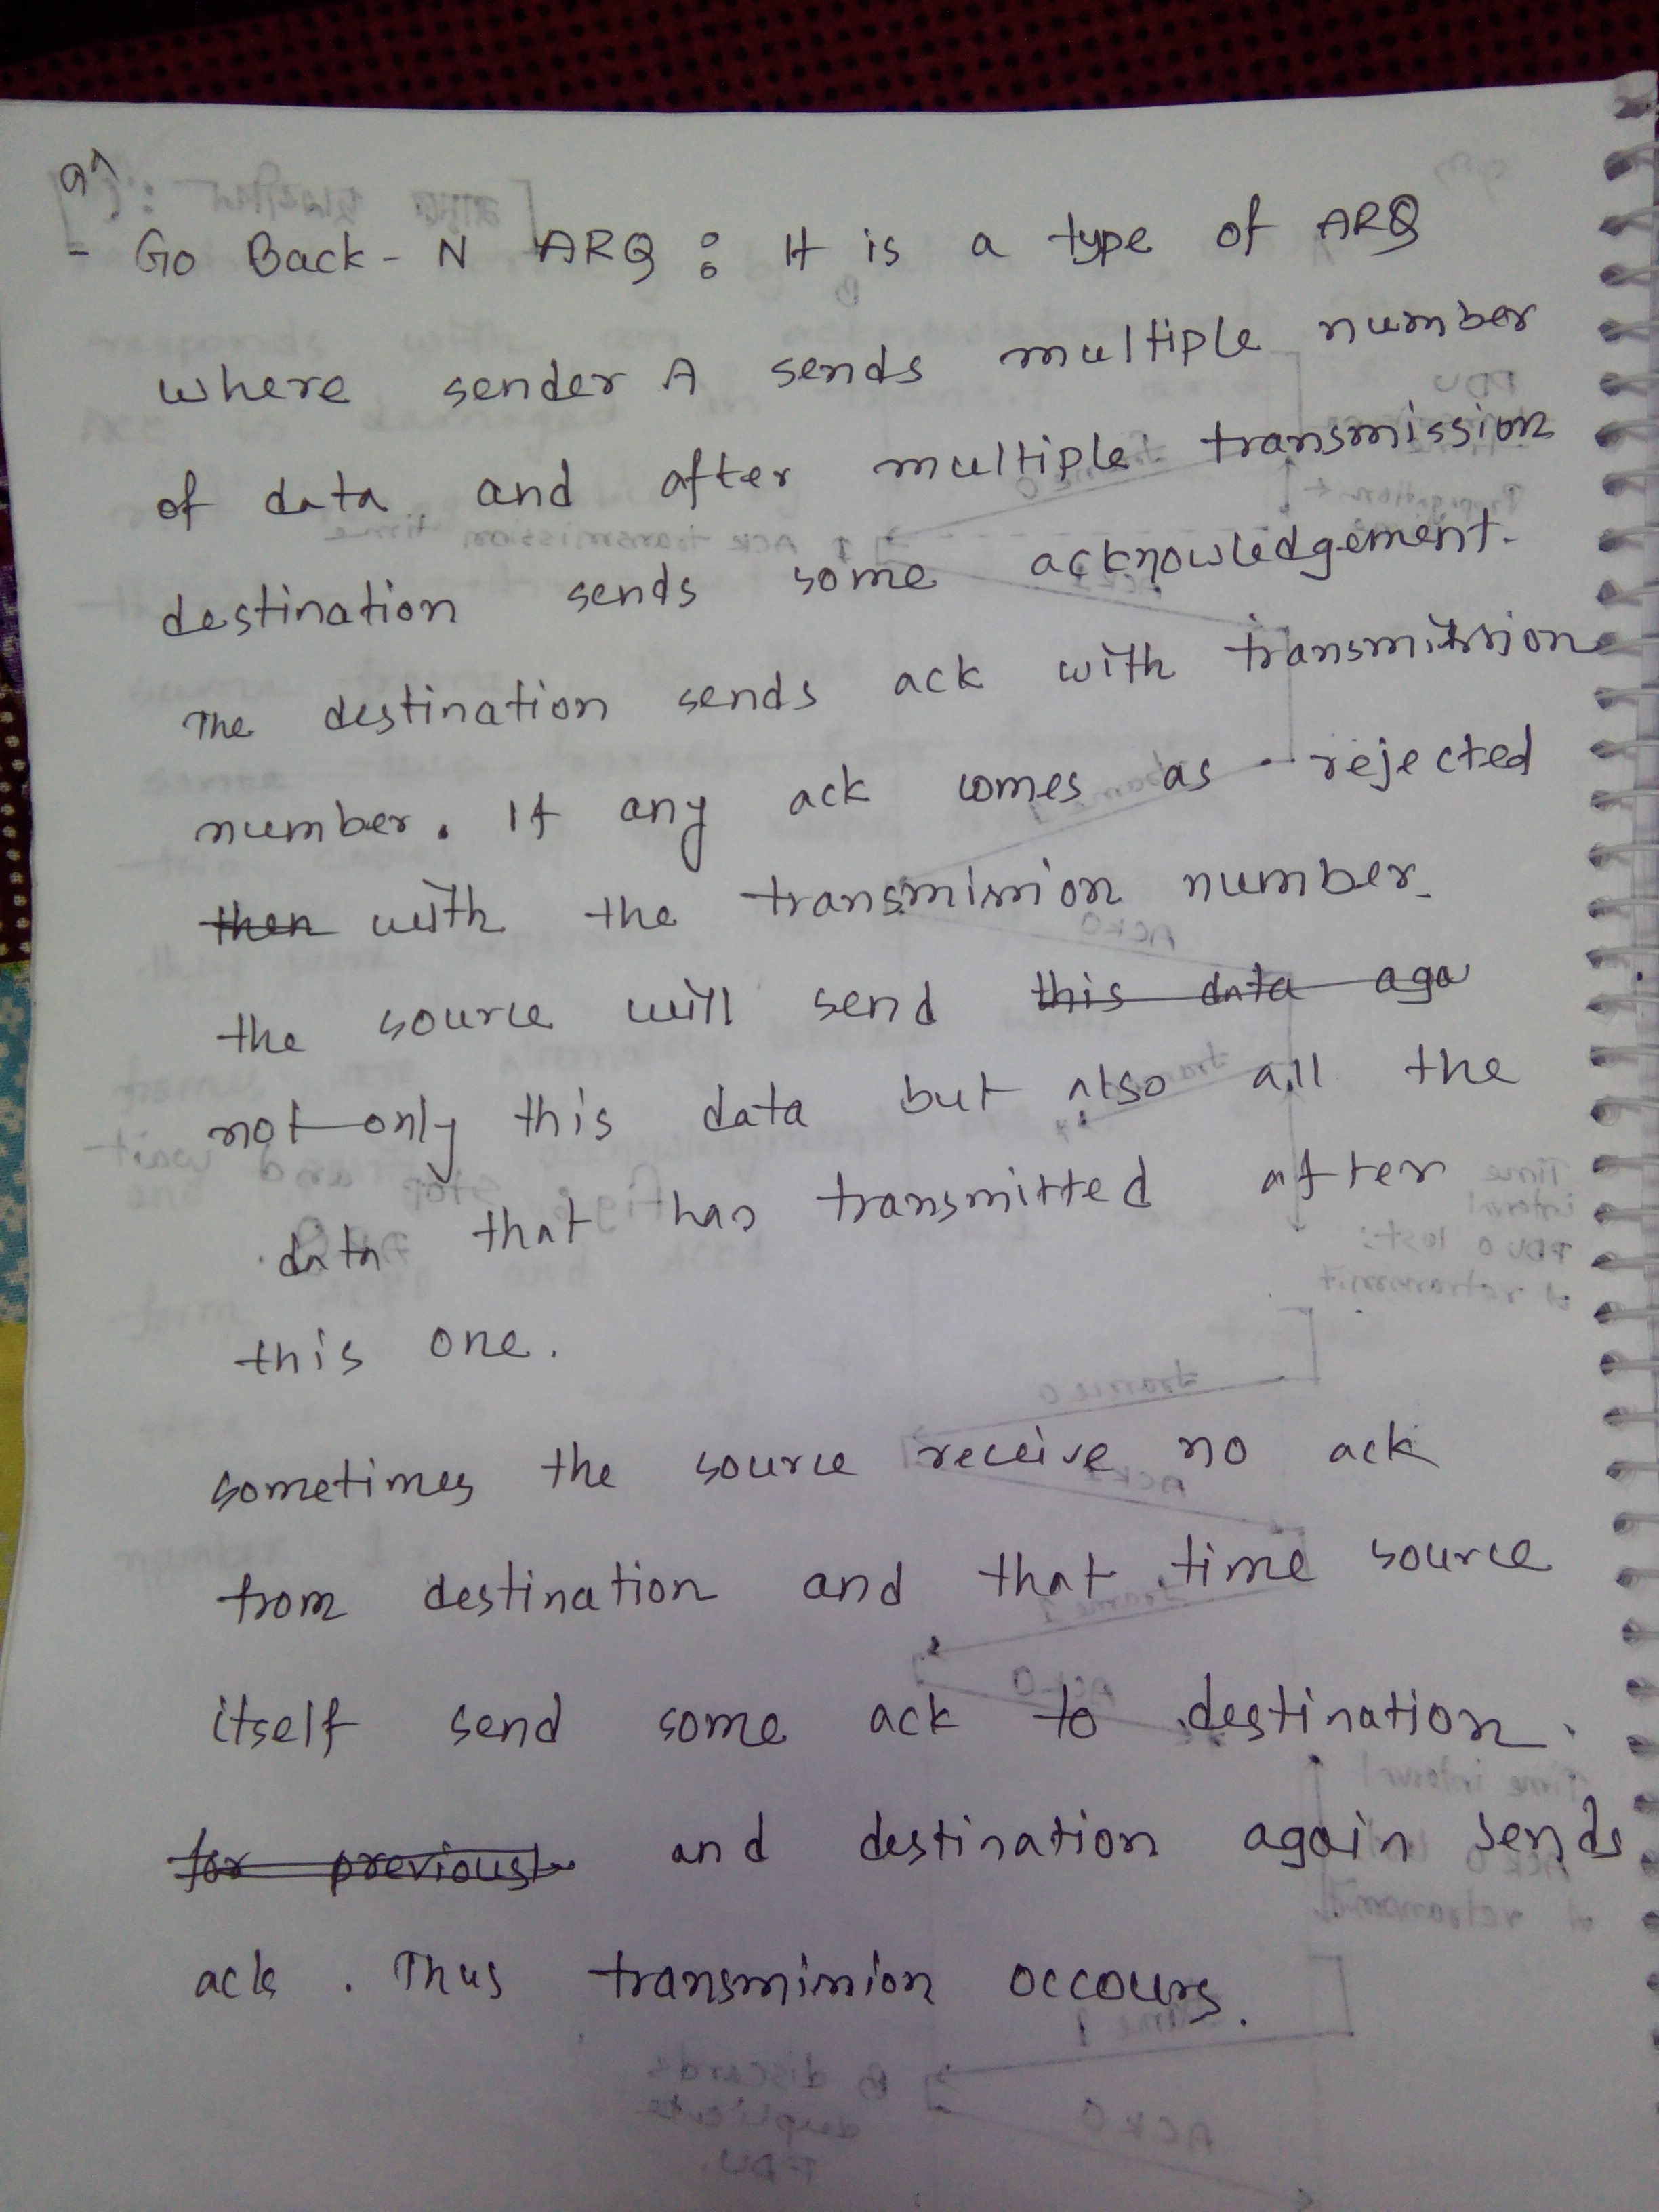 - Go Back - N ARQ : It is a type of ARQ
where sender A sends multiple number
of data and after multiple transmission
destination sends some acknowledgement.
The destination sends ack with transmission
number. If any ack comes as rejected
then with the transmission number.
the source will send this data aga
not only this data but also all the
data that has transmitted after
this one.
sometimes the source receive no ack
from destination and that time source
itself send some ack to destination.
for previous and destination again sends
ack. Thus transmission occours.